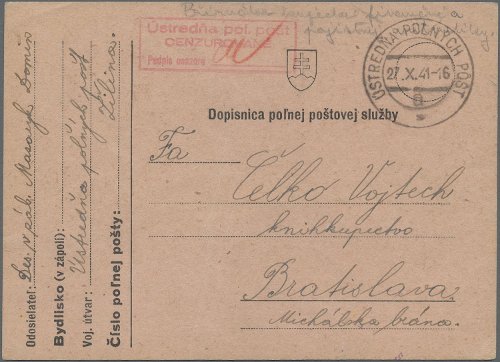 Ústredňa poľ. pošt
CENZUROVANÉ
Podpis cenzora
ÚSTREDŇA POĽNÝCH PÔŠT
27.X.41-16
a
Dopisnica poľnej poštovej služby
Fa
Čelko Vojtech
knihkupectvo
Bratislava
Michálska brána.
Odosielateľ: Des. Masaryk Domin
Bydlisko (v zápolí):
Voj. útvar: Ústredňa poľných pošt
Žilina
Číslo poľnej pošty: